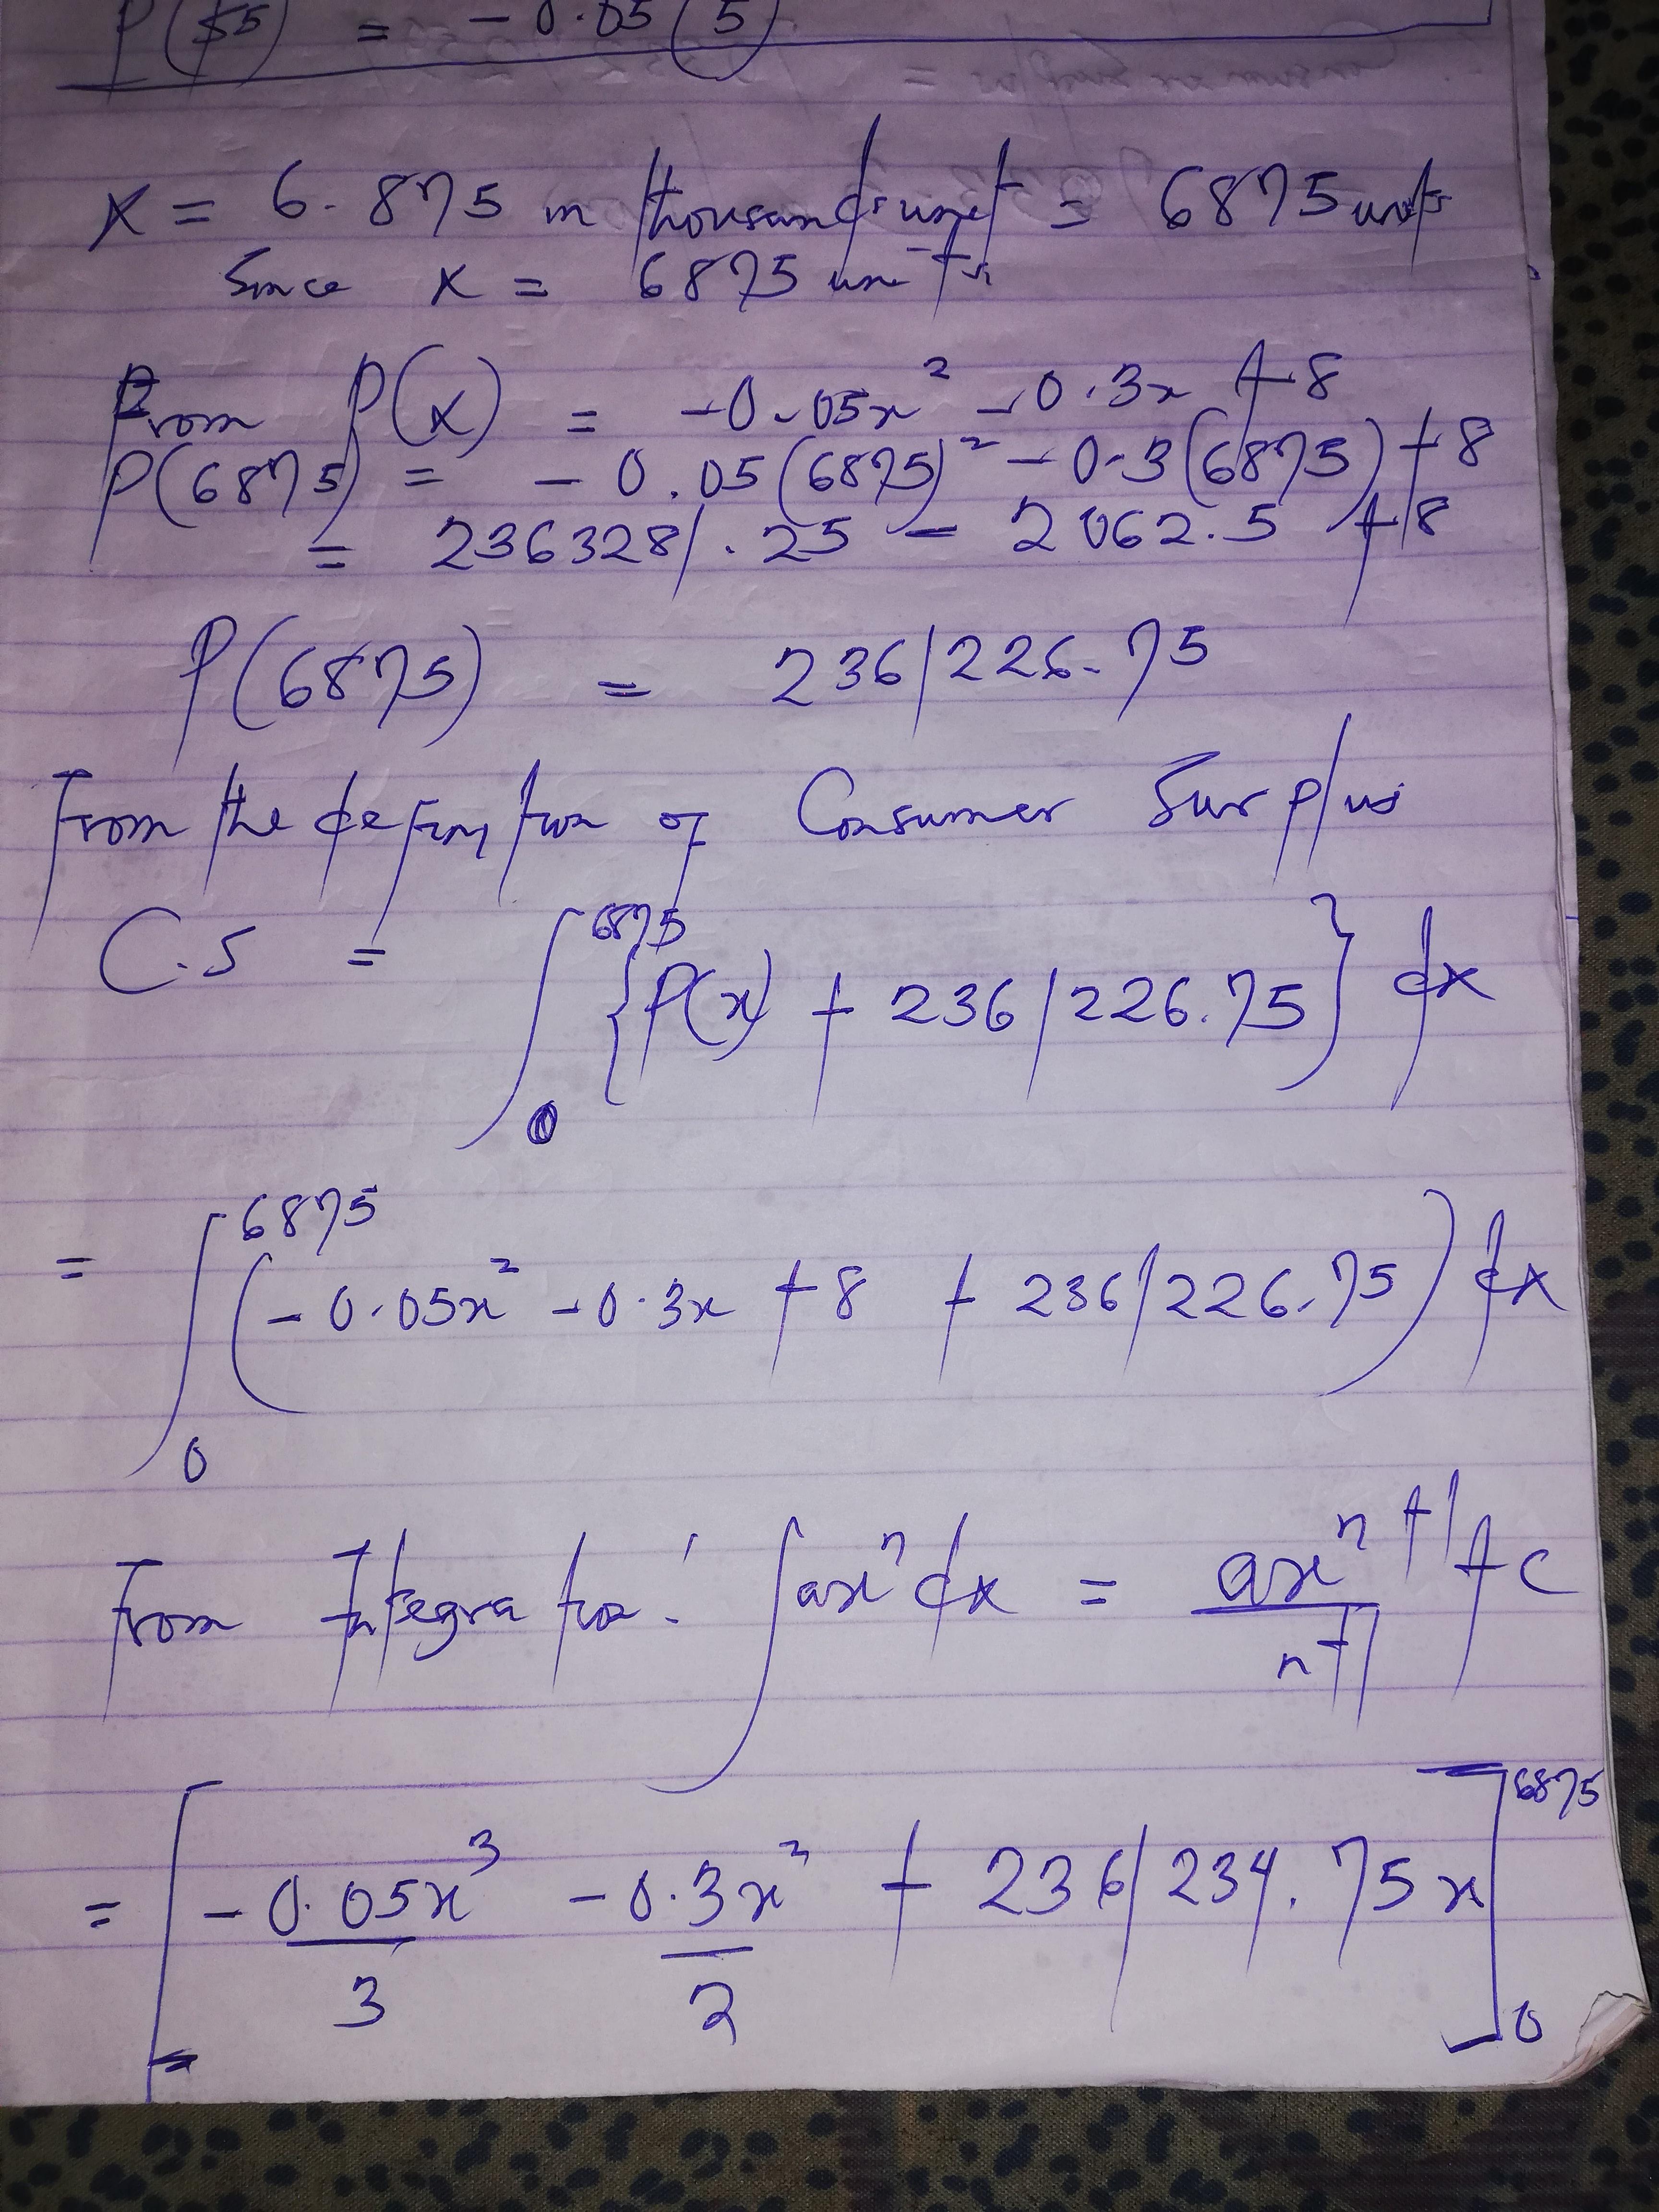 P($5) = -0.05(5)
x = 6.875 in thousands unit = 6875 units
Since x = 6875 units
From P(x) = -0.05x² - 0.3x + 8
P(6875) = -0.05(6875)² - 0.3(6875) + 8
= 236328/.25 - 2062.5 + 8
P(6875) = 236/226.75
From the definition of Consumer Surplus
C.S = ∫₀⁶⁸⁷⁵ {P(x) + 236/226.75} dx
= ∫₀⁶⁸⁷⁵ (-0.05x² - 0.3x + 8 + 236/226.75) dx
From Integration: ∫axⁿdx = axⁿ⁺¹/n+1 + c
= [-0.05x³/3 - 0.3x²/2 + 236/234.75x]₀⁶⁸⁷⁵
=